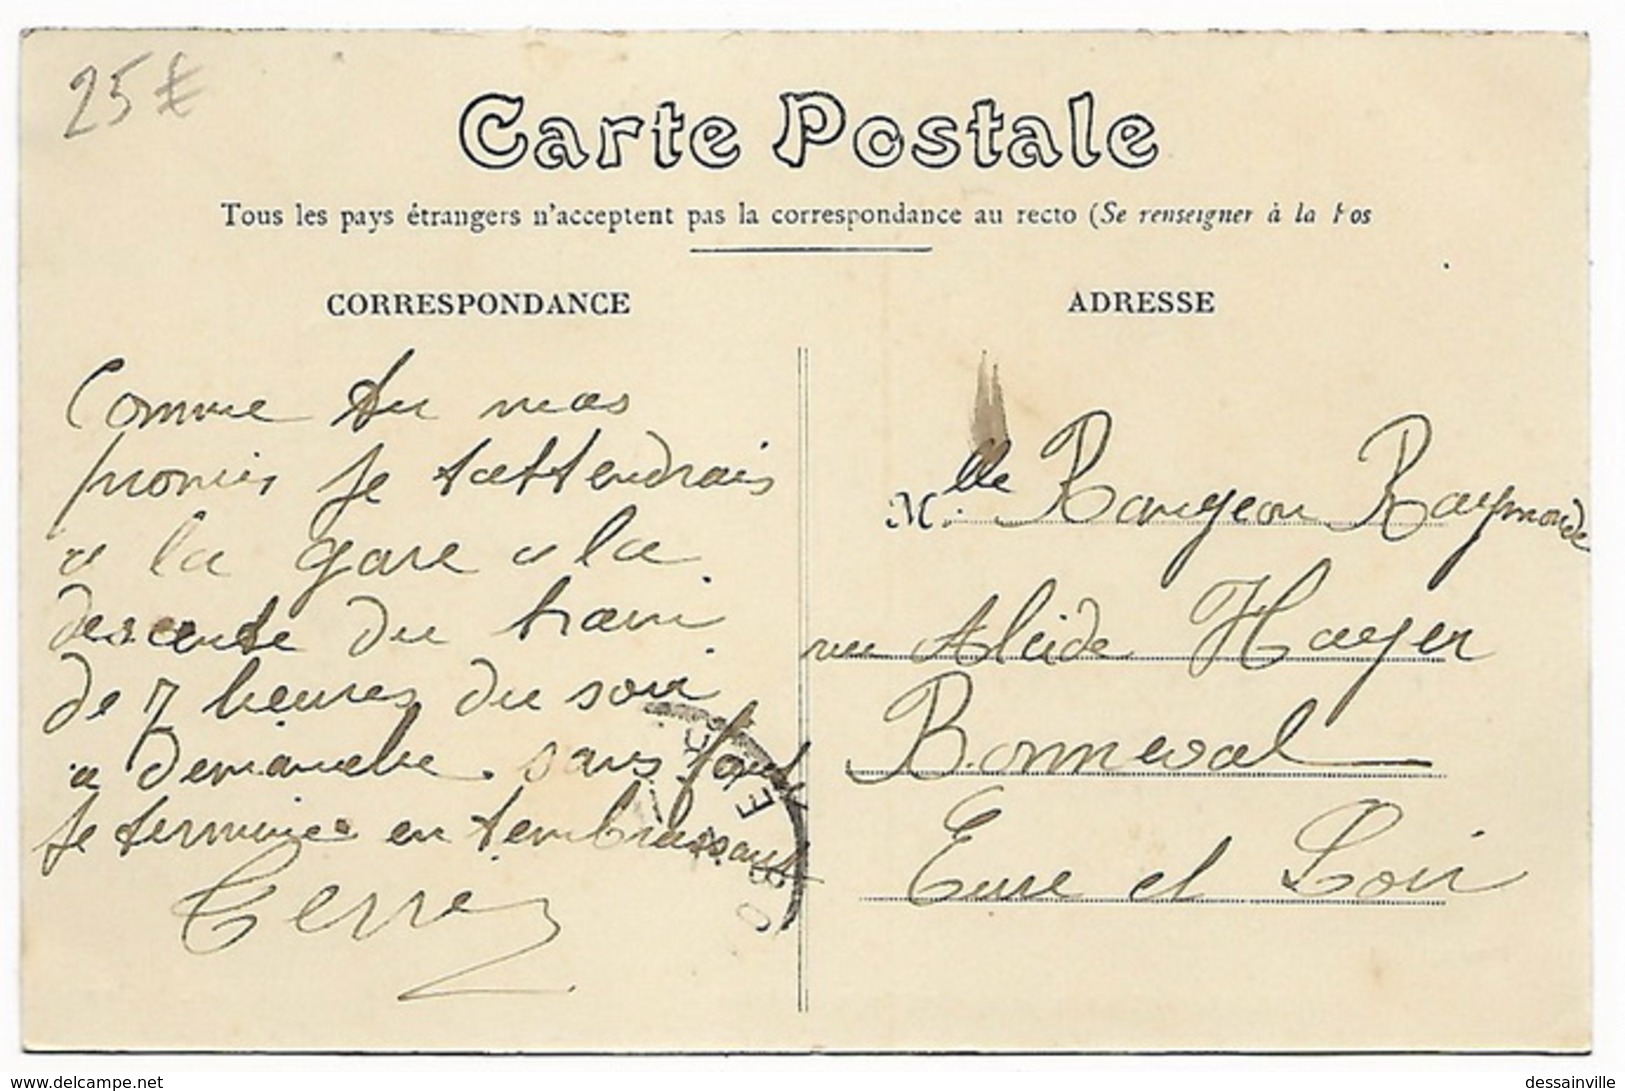 25 €
Carte Postale
Tous les pays étrangers n'acceptent pas la correspondance au recto (Se renseigner à la Pos
CORRESPONDANCE
ADRESSE
Comme tu mas
promis je tattendrais
a la gare a la
descente du train
de 7 heures du soir
a demanche. sans faut
je termine en tembrassant
Mlle Raymonde
rue Alcide Hayer
Bonneval
Eure et Loir
www.delcampe.net
dessainville